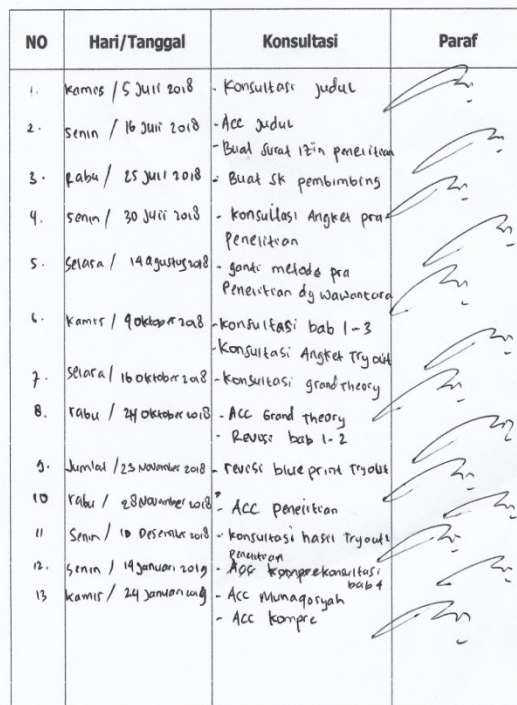 NO Hari/Tanggal Konsultasi Paraf
1. Kamis / 5 Juli 2018 - Konsultasi Judul
2. Senin / 16 Juli 2018 - Acc Judul
- Buat Surat Izin penelitian
3. Rabu / 25 Juli 2018 - Buat SK pembimbing
4. Senin / 30 Juli 2018 - Konsultasi Angket pra
Penelitian
5. Selasa / 14 agustus 2018 - ganti metode pra
Penelitian dg wawancara
6. Kamis / 9 Oktober 2018 - Konsultasi bab 1-3
- Konsultasi Angket Try out
7. Selasa / 16 Oktober 2018 - Konsultasi grand theory
8. rabu / 24 Oktober 2018 - Acc Grand Theory
- Revisi bab 1-2
9. Jumlat / 23 November 2018 - revisi blue print Tryout
10 rabu / 28 November 2018 - ACC penelitian
11 Senin / 10 Desember 2018 - Konsultasi hasil Tryout
penelitian
12. Senin / 14 Januari 2019 - konsultasi
bab 4
13 Kamis / 24 Januari 2019 - Acc Munaqosyah
- Acc kompre